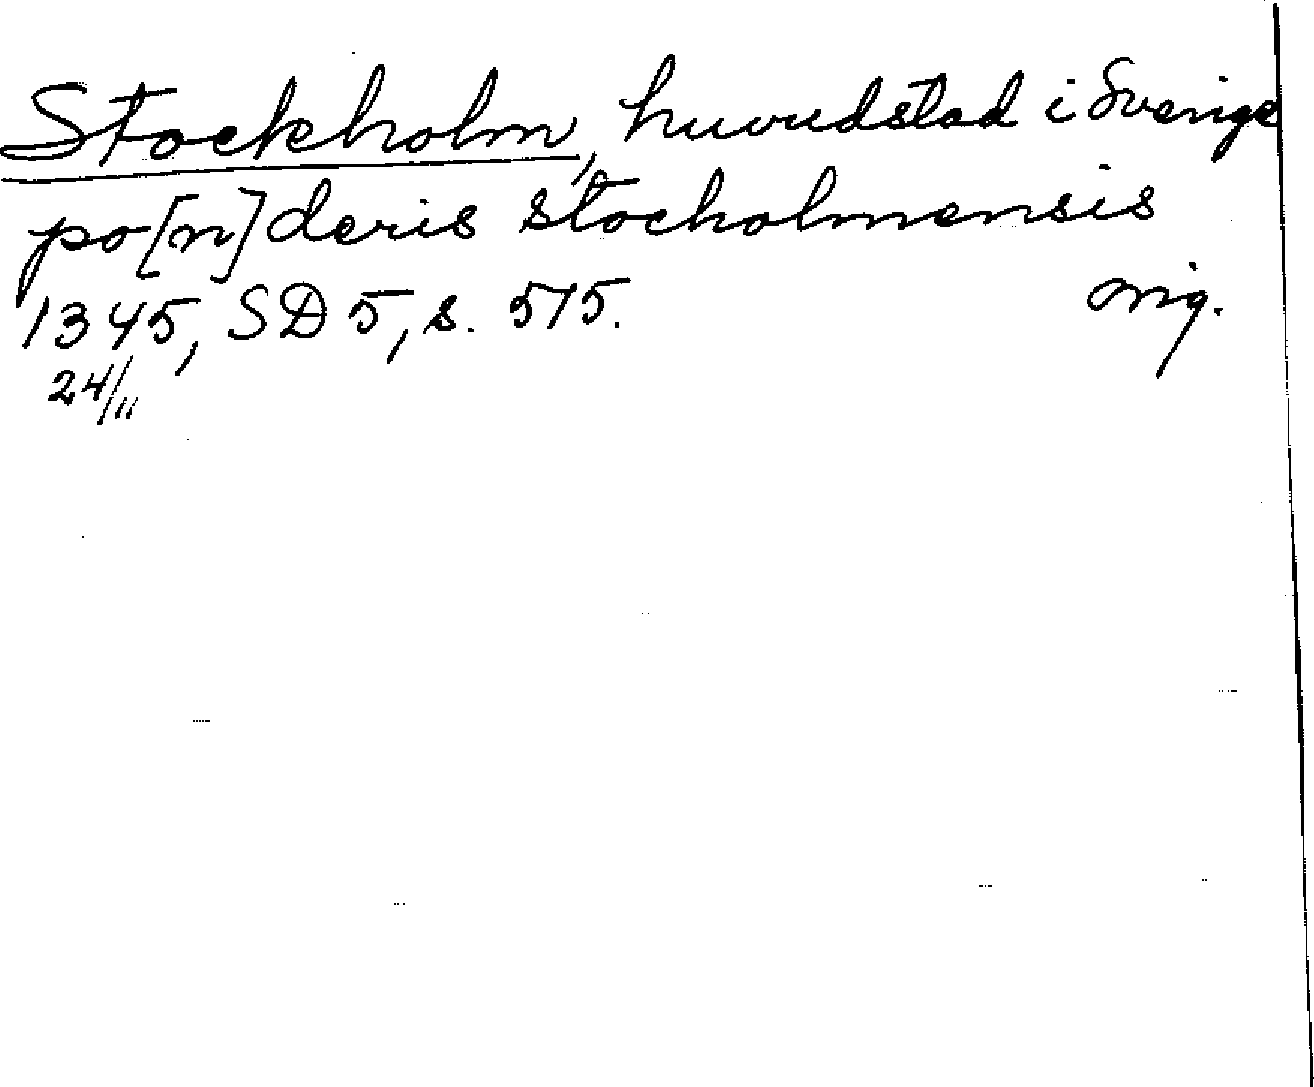 Stockholm, huvudstad i Sverige
po[n]deris stocholmensis
1345, SD 5, s. 515. orig.
24/11